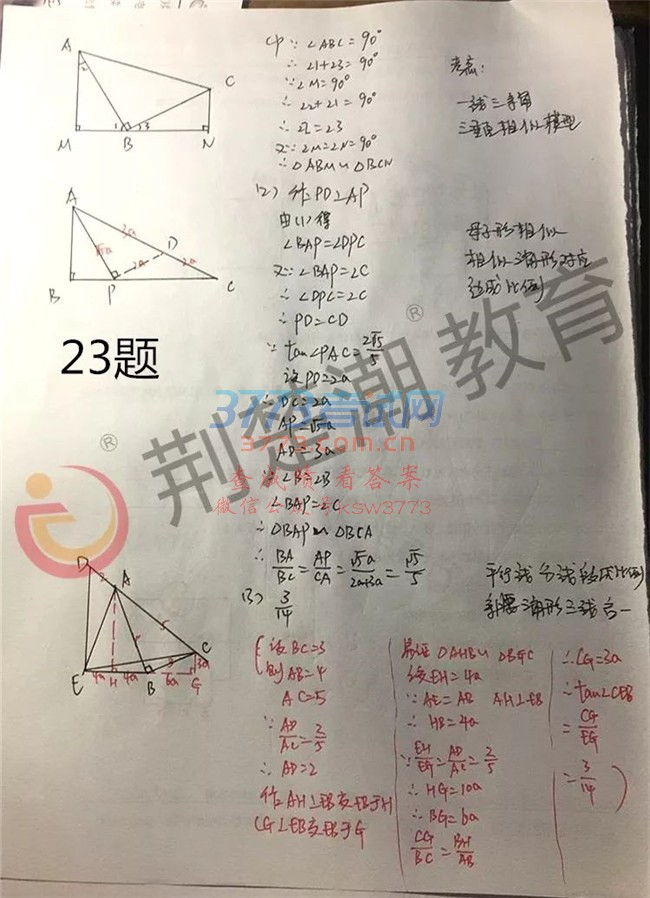 A
C
M
B
N
1
2 3
(1) ∵ ∠ABC=90°
∴ ∠1+∠3=90°
∵ ∠M=90°
∴ ∠2+∠1=90°
∴ ∠2=∠3
又∵ ∠M=∠N=90°
∴ △ABM∽△BCN
考点:
一线三等角
三垂直相似模型
A
B
P
D
C
√5a
3a
2a
2a
(2) 作PD⊥AP
由(1)得
∠BAP=∠DPC
又∵ ∠BAP=∠C
∴ ∠DPC=∠C
∴ PD=CD
∵ tan∠PAC=2√5/5
设PD=2a
∴ DC=2a
AP=√5a
AD=3a
∵ ∠B=∠B
∠BAP=∠C
∴ △BAP∽△BCA
∴ BA/BC=AP/CA=√5a/2a+3a=√5/5
母子形相似
相似三角形对应
边成比例
23题
荆楚潮教育
3773考试网
www.3773.com.cn
查成绩看答案
微信公众号ksw3773
®
®
(3) 3/14
平行线分线段成比例
等腰三角形三线合一
D
A
C
E
H
B
G
2
5
4a
4a
6a
3
3a
设BC=3
则AB=4
AC=5
∵ AD/AC=2/5
∴ AD=2
作AH⊥EB交EB于H
CG⊥EB交EB于G
易证△AHB∽△BGC
设EH=4a
∵ AE=AB AH⊥EB
∴ HB=4a
∵ EH/EG=AD/AC=2/5
∴ HG=10a
∴ BG=6a
CG/BC=BH/AB
∴ CG=3a
∴ tan∠CEB
=CG/EG
=3/14